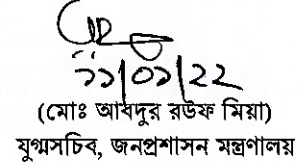 ১১/০১/২২
(মোঃ আবদুর রউফ মিয়া)
যুগ্মসচিব, জনপ্রশাসন মন্ত্রণালয়